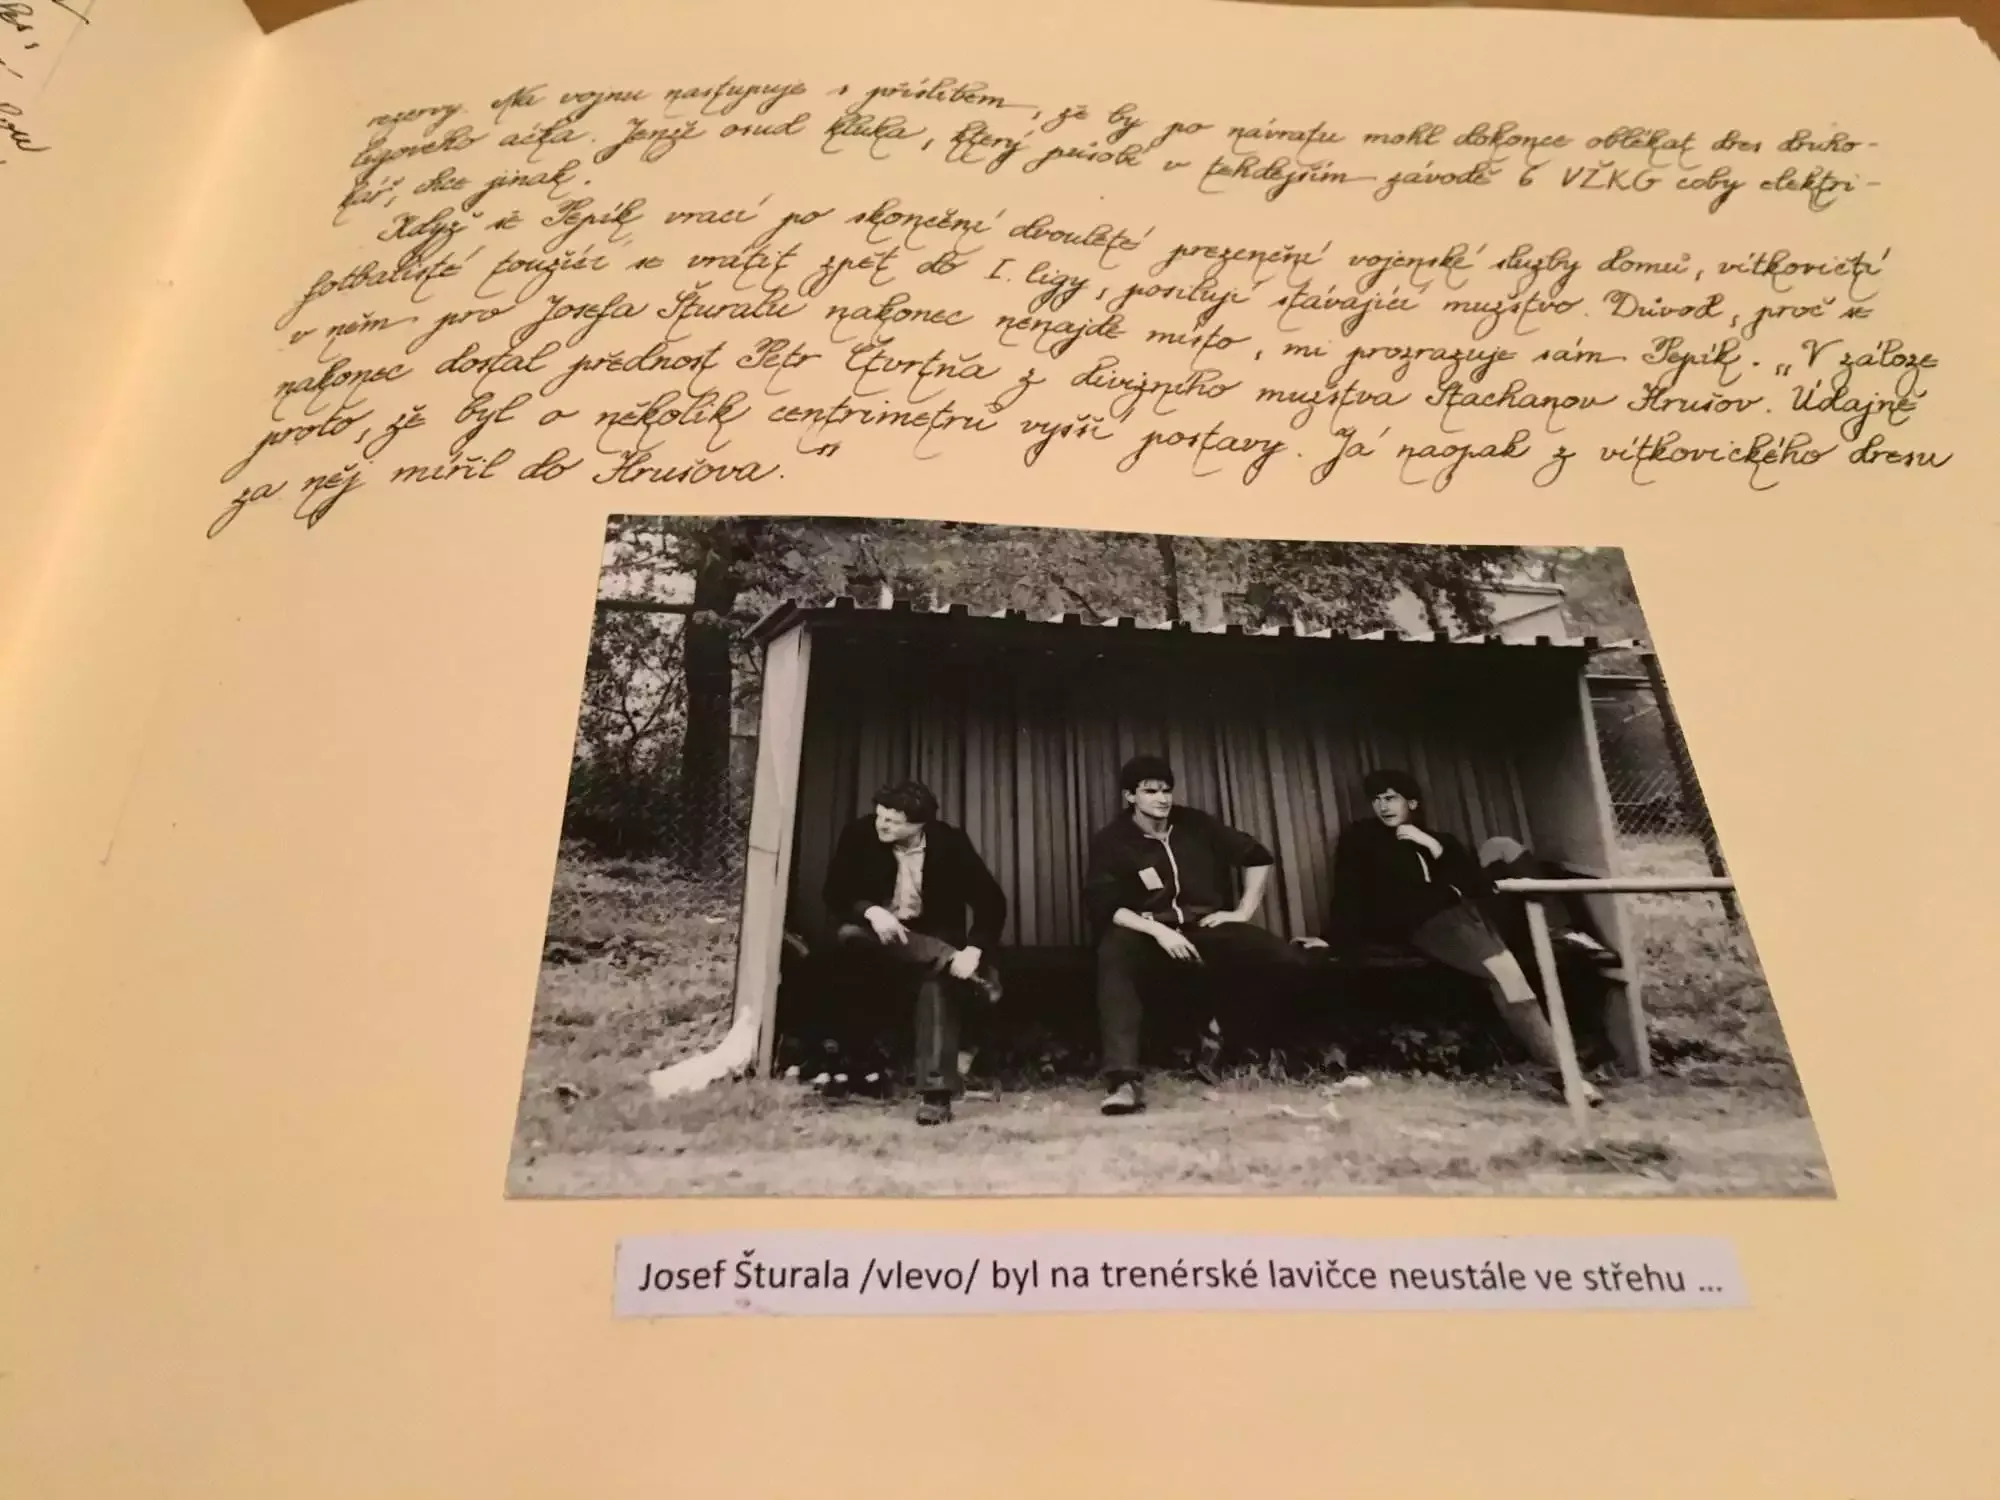 rezervy. Na vojnu nastupuje s příslibem, že by po návratu mohl dokonce oblékat dres druho-
ligového áčka. Jenže osud kluka, který působí v tehdejším závodě 6 VŽKG coby elektri-
kář, chce jinak.
Když se Pepík vrací po skončení dvouleté prezenční vojenské služby domů, vítkovičtí
fotbalisté toužící se vrátit zpět do I. ligy, posilují stávající mužstvo. Důvod, proč se
v něm pro Josefa Šturalu nakonec nenajde místo, mi prozrazuje sám Pepík. „V záloze
nakonec dostal přednost Petr Čtvrtňa z divizního mužstva Stachanov Hrušov. Údajně
proto, že byl o několik centrimetrů vyšší postavy. Já naopak z vítkovického dresu
za něj mířil do Hrušova."
Josef Šturala /vlevo/ byl na trenérské lavičce neustále ve střehu ...